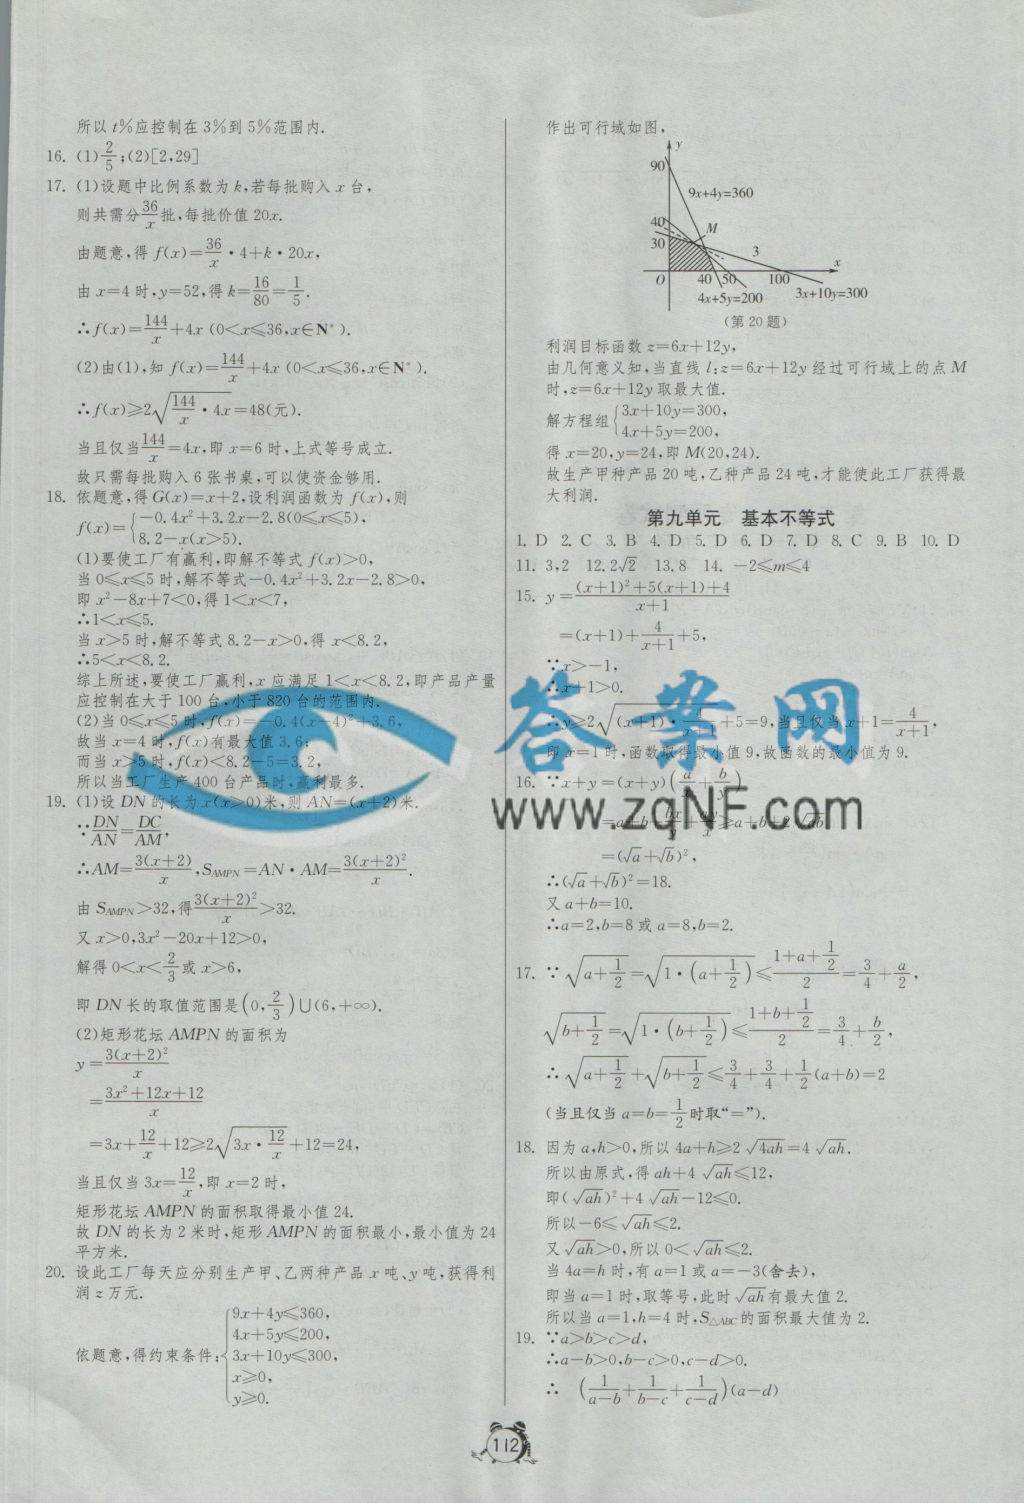 所以 t%应控制在 3%到 5%范围内.
16. (1)2/5;(2)[2,29]
17. (1)设题中比例系数为 k,若每批购入 x 台,
则共需分36/x批,每批价值 20x.
由题意,得 f(x)=36/x·4+k·20x,
由 x=4 时,y=52,得 k=16/80=1/5.
∴f(x)=144/x+4x (0<x≤36,x∈N*).
(2)由(1),知 f(x)=144/x+4x (0<x≤36,x∈N*).
∴f(x)≥2√(144/x·4x)=48(元).
当且仅当144/x=4x,即 x=6 时,上式等号成立.
故只需每批购入 6 张书桌,可以使资金够用.
18. 依题意,得 G(x)=x+2,设利润函数为 f(x),则
f(x)={-0.4x²+3.2x-2.8(0≤x≤5),
8.2-x(x>5).
(1)要使工厂有赢利,即解不等式 f(x)>0,
当 0≤x≤5 时,解不等式-0.4x²+3.2x-2.8>0,
即 x²-8x+7<0,得 1<x<7,
∴1<x≤5.
当 x>5 时,解不等式 8.2-x>0,得 x<8.2,
∴5<x<8.2.
综上所述,要使工厂赢利,x 应满足 1<x<8.2,即产品产量
应控制在大于 100 台,小于 820 台的范围内.
(2)当 0≤x≤5 时,f(x)=-0.4(x-4)²+3.6,
故当 x=4 时,f(x)有最大值 3.6;
而当 x>5 时,f(x)<8.2-5=3.2,
所以当工厂生产 400 台产品时,赢利最多.
19. (1)设 DN 的长为 x(x>0)米,则 AN=(x+2)米.
∵DN/AN=DC/AM,
∴AM=3(x+2)/x,S_AMPN=AN·AM=3(x+2)²/x.
由 S_AMPN>32,得3(x+2)²/x>32.
又 x>0,3x²-20x+12>0,
解得 0<x<2/3或 x>6,
即 DN 长的取值范围是(0,2/3)∪(6,+∞).
(2)矩形花坛 AMPN 的面积为
y=3(x+2)²/x
=3x²+12x+12/x
=3x+12/x+12≥2√(3x·12/x)+12=24,
当且仅当 3x=12/x,即 x=2 时,
矩形花坛 AMPN 的面积取得最小值 24.
故 DN 的长为 2 米时,矩形 AMPN 的面积最小,最小值为 24
平方米.
20. 设此工厂每天应分别生产甲、乙两种产品 x 吨、y 吨,获得利
润 z 万元.
依题意,得约束条件:{9x+4y≤360,
4x+5y≤200,
3x+10y≤300,
x≥0,
y≥0.
作出可行域如图,
y
90
9x+4y=360
40
M
30
3
x
O
40 50 100
4x+5y=200
3x+10y=300
(第 20 题)
利润目标函数 z=6x+12y,
由几何意义知,当直线 l:z=6x+12y 经过可行域上的点 M
时,z=6x+12y 取最大值.
解方程组{3x+10y=300,
4x+5y=200,
得 x=20,y=24,即 M(20,24).
故生产甲种产品 20 吨,乙种产品 24 吨,才能使此工厂获得最
大利润.
第九单元 基本不等式
1. D 2. C 3. B 4. D 5. D 6. D 7. D 8. C 9. B 10. D
11. 3,2 12.2√2 13.8 14. -2≤m≤4
15. y=(x+1)²+5(x+1)+4/x+1
=(x+1)+4/x+1+5,
∵x>-1,
∴x+1>0.
∴y≥2√((x+1)·4/x+1)+5=9,当且仅当 x+1=4/x+1,
即 x=1 时,函数取得最小值 9,故函数的最小值为 9.
16. ∵x+y=(x+y)(a/x+b/y)
=a+b+bx/y+ay/x≥a+b+2√ab
=(√a+√b)²,
∴(√a+√b)²=18.
又 a+b=10.
∴a=2,b=8 或 a=8,b=2.
17. ∵√(a+1/2)=√(1·(a+1/2))≤(1+a+1/2)/2=3/4+a/2,
√(b+1/2)=√(1·(b+1/2))≤(1+b+1/2)/2=3/4+b/2,
∴√(a+1/2)+√(b+1/2)≤3/4+3/4+1/2(a+b)=2
(当且仅当 a=b=1/2时取“=”).
18. 因为 a,h>0,所以 4a+h≥2√4ah=4√ah.
所以由原式,得 ah+4√ah≤12,
即(√ah)²+4√ah-12≤0.
所以-6≤√ah≤2.
又√ah>0,所以 0<√ah≤2.
当 4a=h 时,有 a=1 或 a=-3(舍去),
即当 a=1 时,取等号,此时√ah有最大值 2.
所以当 a=1,h=4 时,S△ABC的面积最大值为 2.
19. ∵a>b>c>d,
∴a-b>0,b-c>0,c-d>0.
∴ (1/a-b+1/b-c+1/c-d)(a-d)
答案网
www.zqNF.com
112